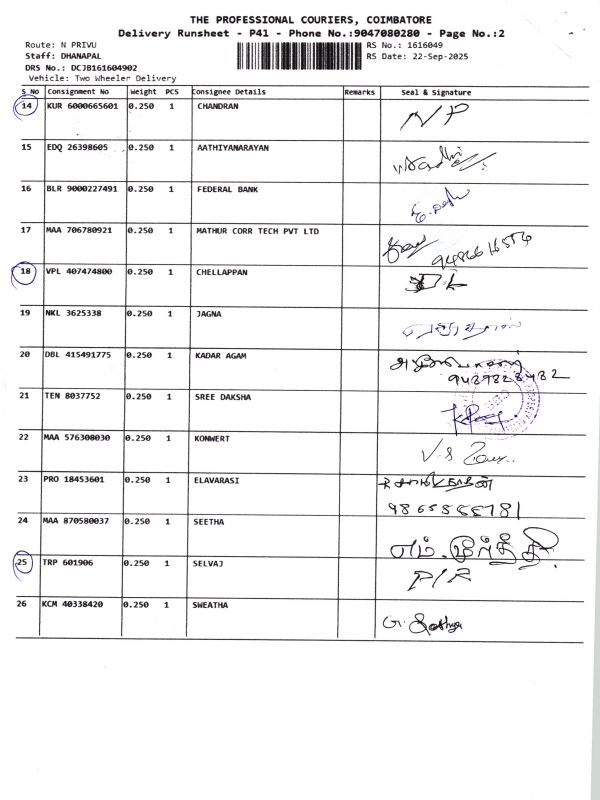 THE PROFESSIONAL COURIERS, COIMBATORE
Delivery Runsheet - P41 - Phone No.:9047080280 - Page No.:2
Route: N PRIVU RS No.: 1616049
Staff: DHANAPAL RS Date: 22-Sep-2025
DRS No.: DCJB161604902
Vehicle: Two Wheeler Delivery
S No Consignment No Weight PCS Consignee Details Remarks Seal & Signature
14 KUR 6000665601 0.250 1 CHANDRAN NP
15 EDQ 26398605 0.250 1 AATHIYANARAYAN
16 BLR 9000227491 0.250 1 FEDERAL BANK
17 MAA 706780921 0.250 1 MATHUR CORR TECH PVT LTD
18 VPL 407474800 0.250 1 CHELLAPPAN DL
19 NKL 3625338 0.250 1 JAGNA
20 DBL 415491775 0.250 1 KADAR AGAM
21 TEN 8037752 0.250 1 SREE DAKSHA
22 MAA 576308030 0.250 1 KONWERT V.S
23 PRO 18453601 0.250 1 ELAVARASI
24 MAA 870580037 0.250 1 SEETHA எம். மூர்த்தி
25 TRP 601906 0.250 1 SELVAJ P/R
26 KCM 40338420 0.250 1 SWEATHA G. Sathya